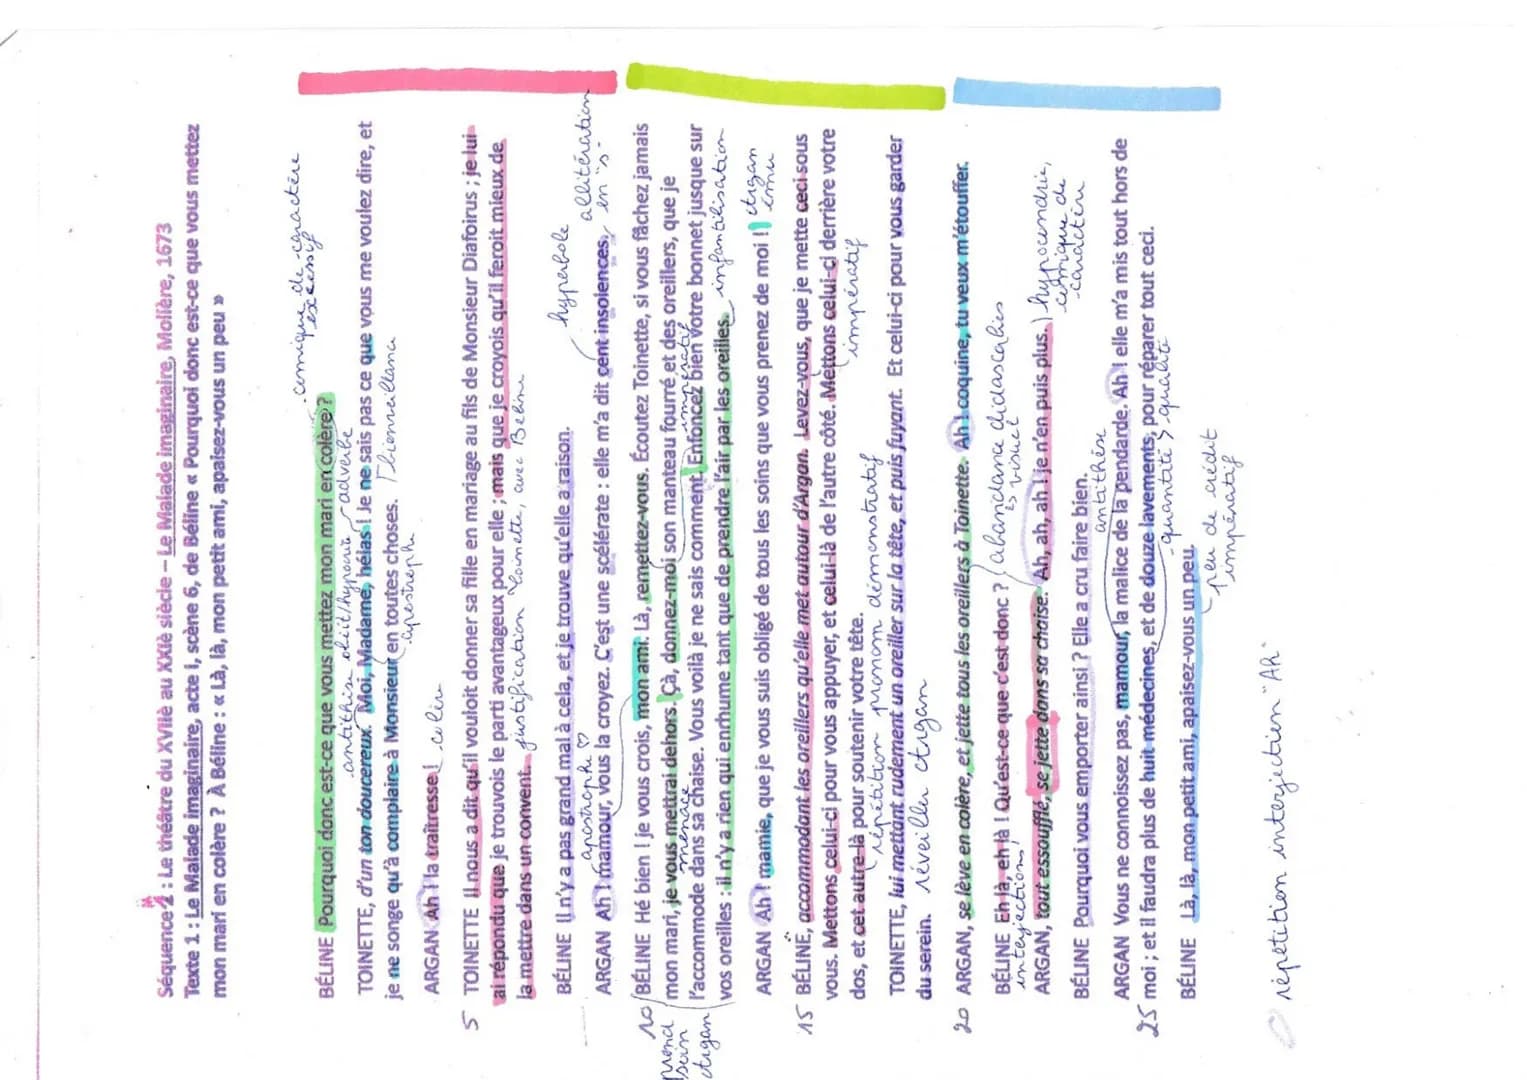 Séquence 2 : Le théâtre du XVIIè au XXIè siècle – Le Malade imaginaire, Molière, 1673
Texte 1 : Le Malade imaginaire, acte I, scène 6, de Béline « Pourquoi donc est-ce que vous mettez
mon mari en colère ? À Béline : « Là, là, mon petit ami, apaisez-vous un peu »
comique de caractère
excessif
BÉLINE Pourquoi donc est-ce que vous mettez mon mari en colère ?
antithèse
adverbe
TOINETTE, d'un ton doucereux. Moi, Madame, hélas ! Je ne sais pas ce que vous me voulez dire, et
je ne songe qu'à complaire à Monsieur en toutes choses.
bienveillance
apostrophe
ARGAN Ah ! la traîtresse !
colère
5 TOINETTE Il nous a dit qu'il vouloit donner sa fille en mariage au fils de Monsieur Diafoirus ; je lui
ai répondu que je trouvois le parti avantageux pour elle ; mais que je croyois qu'il feroit mieux de
la mettre dans un convent.
justification Toinette, avec Béline
hyperbole
BÉLINE Il n'y a pas grand mal à cela, et je trouve qu'elle a raison.
allitération
en "s"
ARGAN Ah ! mamour, vous la croyez. C'est une scélérate : elle m'a dit cent insolences.
apostrophe ♡
10 BÉLINE Hé bien ! je vous crois, mon ami. Là, remettez-vous. Écoutez Toinette, si vous fâchez jamais
mon mari, je vous mettrai dehors. Çà, donnez-moi son manteau fourré et des oreillers, que je
menace
impératif
l'accommode dans sa chaise. Vous voilà je ne sais comment. Enfoncez bien votre bonnet jusque sur
vos oreilles : il n'y a rien qui enrhume tant que de prendre l'air par les oreilles.
infantilisation
prend
soin
Argan
ARGAN Ah ! mamie, que je vous suis obligé de tous les soins que vous prenez de moi !
Argan
ému
15 BÉLINE, accommodant les oreillers qu'elle met autour d'Argan. Levez-vous, que je mette ceci sous
vous. Mettons celui-ci pour vous appuyer, et celui-là de l'autre côté. Mettons celui-ci derrière votre
dos, et cet autre-là pour soutenir votre tête.
impératif
répétition pronom démonstratif
TOINETTE, lui mettant rudement un oreiller sur la tête, et puis fuyant. Et celui-ci pour vous garder
du serein.
réveiller Argan
20 ARGAN, se lève en colère, et jette tous les oreillers à Toinette. Ah ! coquine, tu veux m'étouffer.
BÉLINE Eh là, eh là ! Qu'est-ce que c'est donc ?
interjections
abondance didascalies
visuel
ARGAN, tout essoufflé, se jette dans sa chaise. Ah, ah, ah ! je n'en puis plus.
hypocondrie,
comique de
caractère
BÉLINE Pourquoi vous emporter ainsi ? Elle a cru faire bien.
antithèse
ARGAN Vous ne connoissez pas, mamour, la malice de la pendarde. Ah ! elle m'a mis tout hors de
25 moi ; et il faudra plus de huit médecines, et de douze lavements, pour réparer tout ceci.
quantité > qualité
BÉLINE Là, là, mon petit ami, apaisez-vous un peu.
peu de crédit
impératif
répétition interjection "Ah"